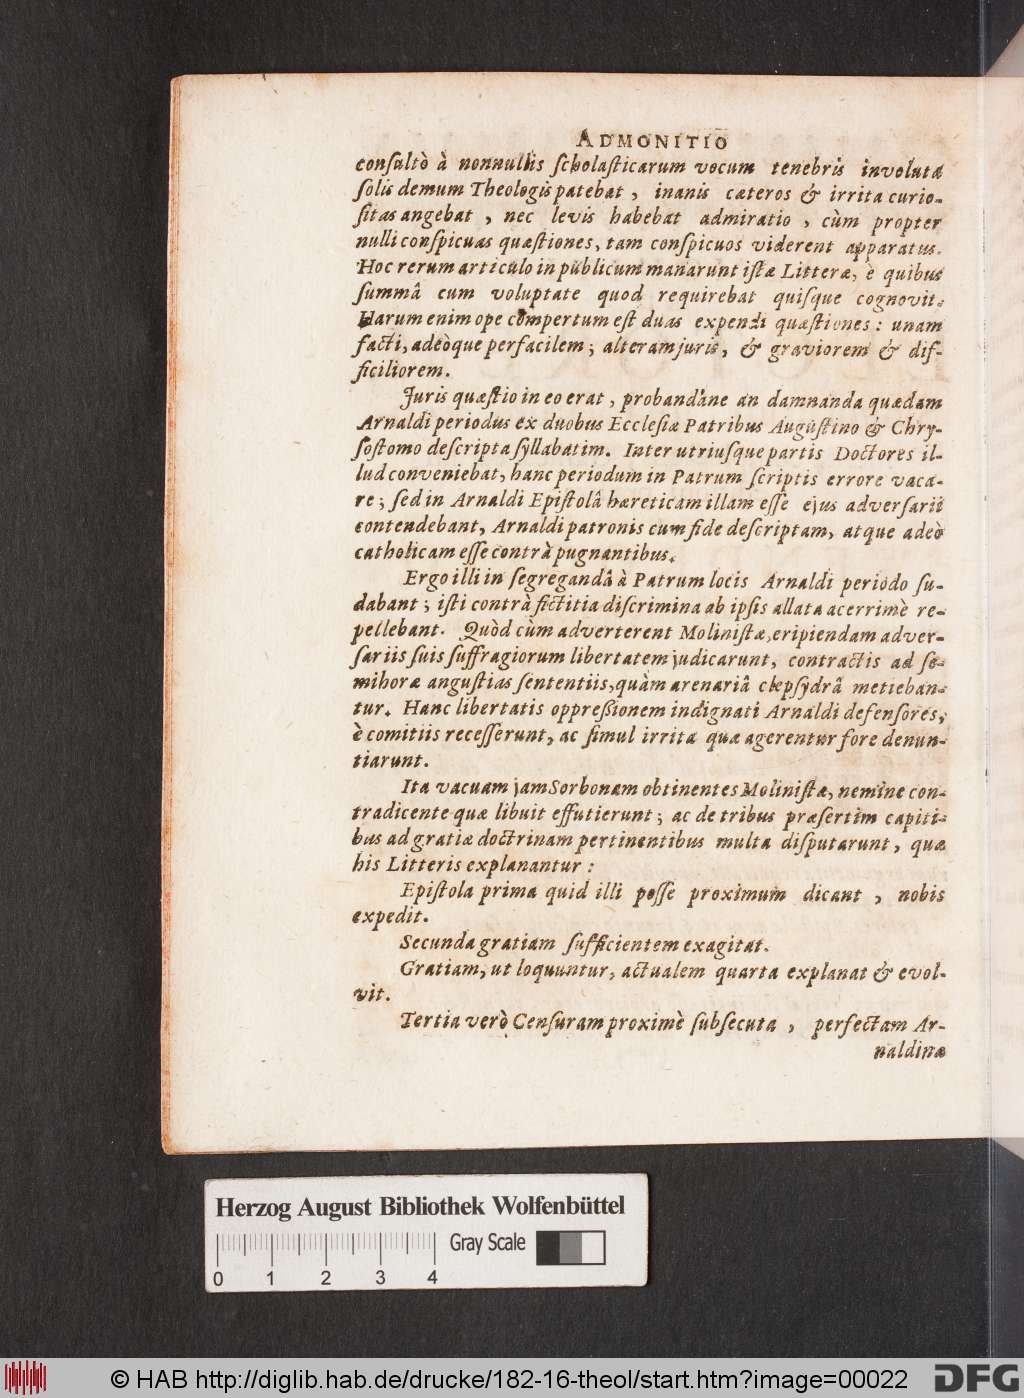 ADMONITIO
conſultò à nonnullis ſcholaſticarum vocum tenebris involutæ
ſolis demum Theologis patebat, inanis cæteros & irrita curio-
ſitas angebat, nec levis habebat admiratio, cùm propter
nulli conſpicuas quæſtiones, tam conſpicuos viderent apparatus.
Hoc rerum articulo in publicum manarunt iſtæ Litteræ, è quibus
ſummâ cum voluptate quod requirebat quiſque cognovit.
Harum enim ope compertum eſt duas expendi quæſtiones: unam
facti, adeòque perfacilem; alteram juris, & graviorem & dif-
ficiliorem.
Juris quæſtio in eo erat, probandáne an damnanda quædam
Arnaldi periodus ex duobus Eccleſiæ Patribus Auguſtino & Chry-
ſoſtomo deſcripta ſyllabatim. Inter utriuſque partis Doctores il-
lud conveniebat, hanc periodum in Patrum ſcriptis errore vaca-
re; ſed in Arnaldi Epiſtolâ hæreticam illam eſſe ejus adverſarii
contendebant, Arnaldi patronis cum fide deſcriptam, atque adeò
catholicam eſſe contrà pugnantibus.
Ergo illi in ſegregandâ à Patrum locis Arnaldi periodo ſu-
dabant; iſti contrà fictitia diſcrimina ab ipſis allata acerrimè re-
pellebant. Quòd cùm adverterent Moliniſtæ, eripiendam adver-
ſariis ſuis ſuffragiorum libertatem judicarunt, contractis ad ſe-
mihoræ anguſtias ſententiis, quàm arenariâ clepſydrâ metieban-
tur. Hanc libertatis oppreßionem indignati Arnaldi defenſores,
è comitiis receſſerunt, ac ſimul irrita quæ agerentur fore denun-
tiarunt.
Ita vacuam jam Sorbonam obtinentes Moliniſtæ, nemine con-
tradicente quæ libuit effutierunt; ac de tribus præſertim capiti-
bus ad gratiæ doctrinam pertinentibus multa diſputarunt, quæ
his Litteris explanantur:
Epiſtola prima quid illi poſſe proximum dicant, nobis
expedit.
Secunda gratiam ſufficientem exagitat.
Gratiam, ut loquuntur, actualem quarta explanat & evol-
vit.
Tertia verò Cenſuram proximè ſubſecuta, perfectam Ar-
naldinæ
Herzog August Bibliothek Wolfenbüttel
Gray Scale
0 1 2 3 4
© HAB http://diglib.hab.de/drucke/182-16-theol/start.htm?image=00022
DFG